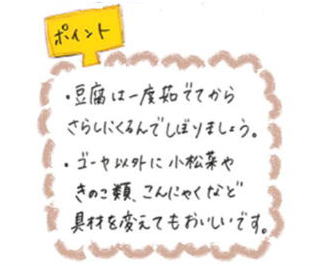 ポイント
・豆腐は一度茹でてから
さらしにくるんでしぼりましょう。
・ゴーヤ以外に小松菜や
きのこ類、こんにゃくなど
具材を変えてもおいしいです。